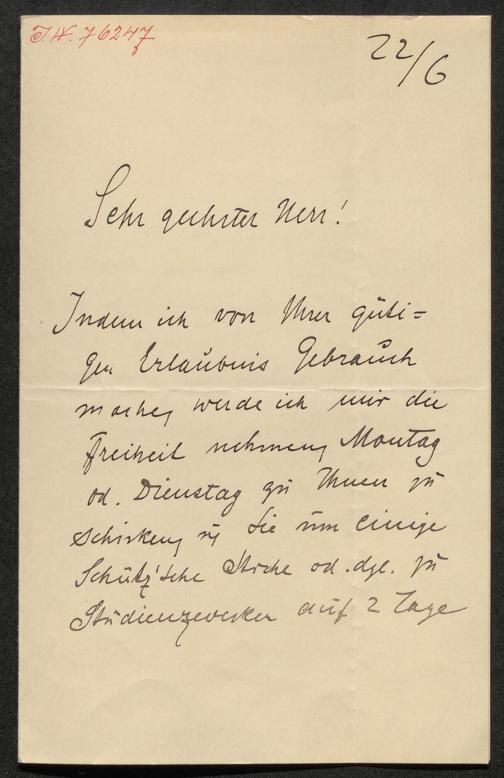 J.N. 76247
22/6
Sehr geehrter Herr!
Indem ich von Ihrer güti=
gen Erlaubnis Gebrauch
mache, werde ich mir die
Freiheit nehmen, Montag
od. Dienstag zu Ihnen zu
schicken, u Sie um einige
Schütz'sche od. dgl. zu
Studienzwecken auf 2 Tage